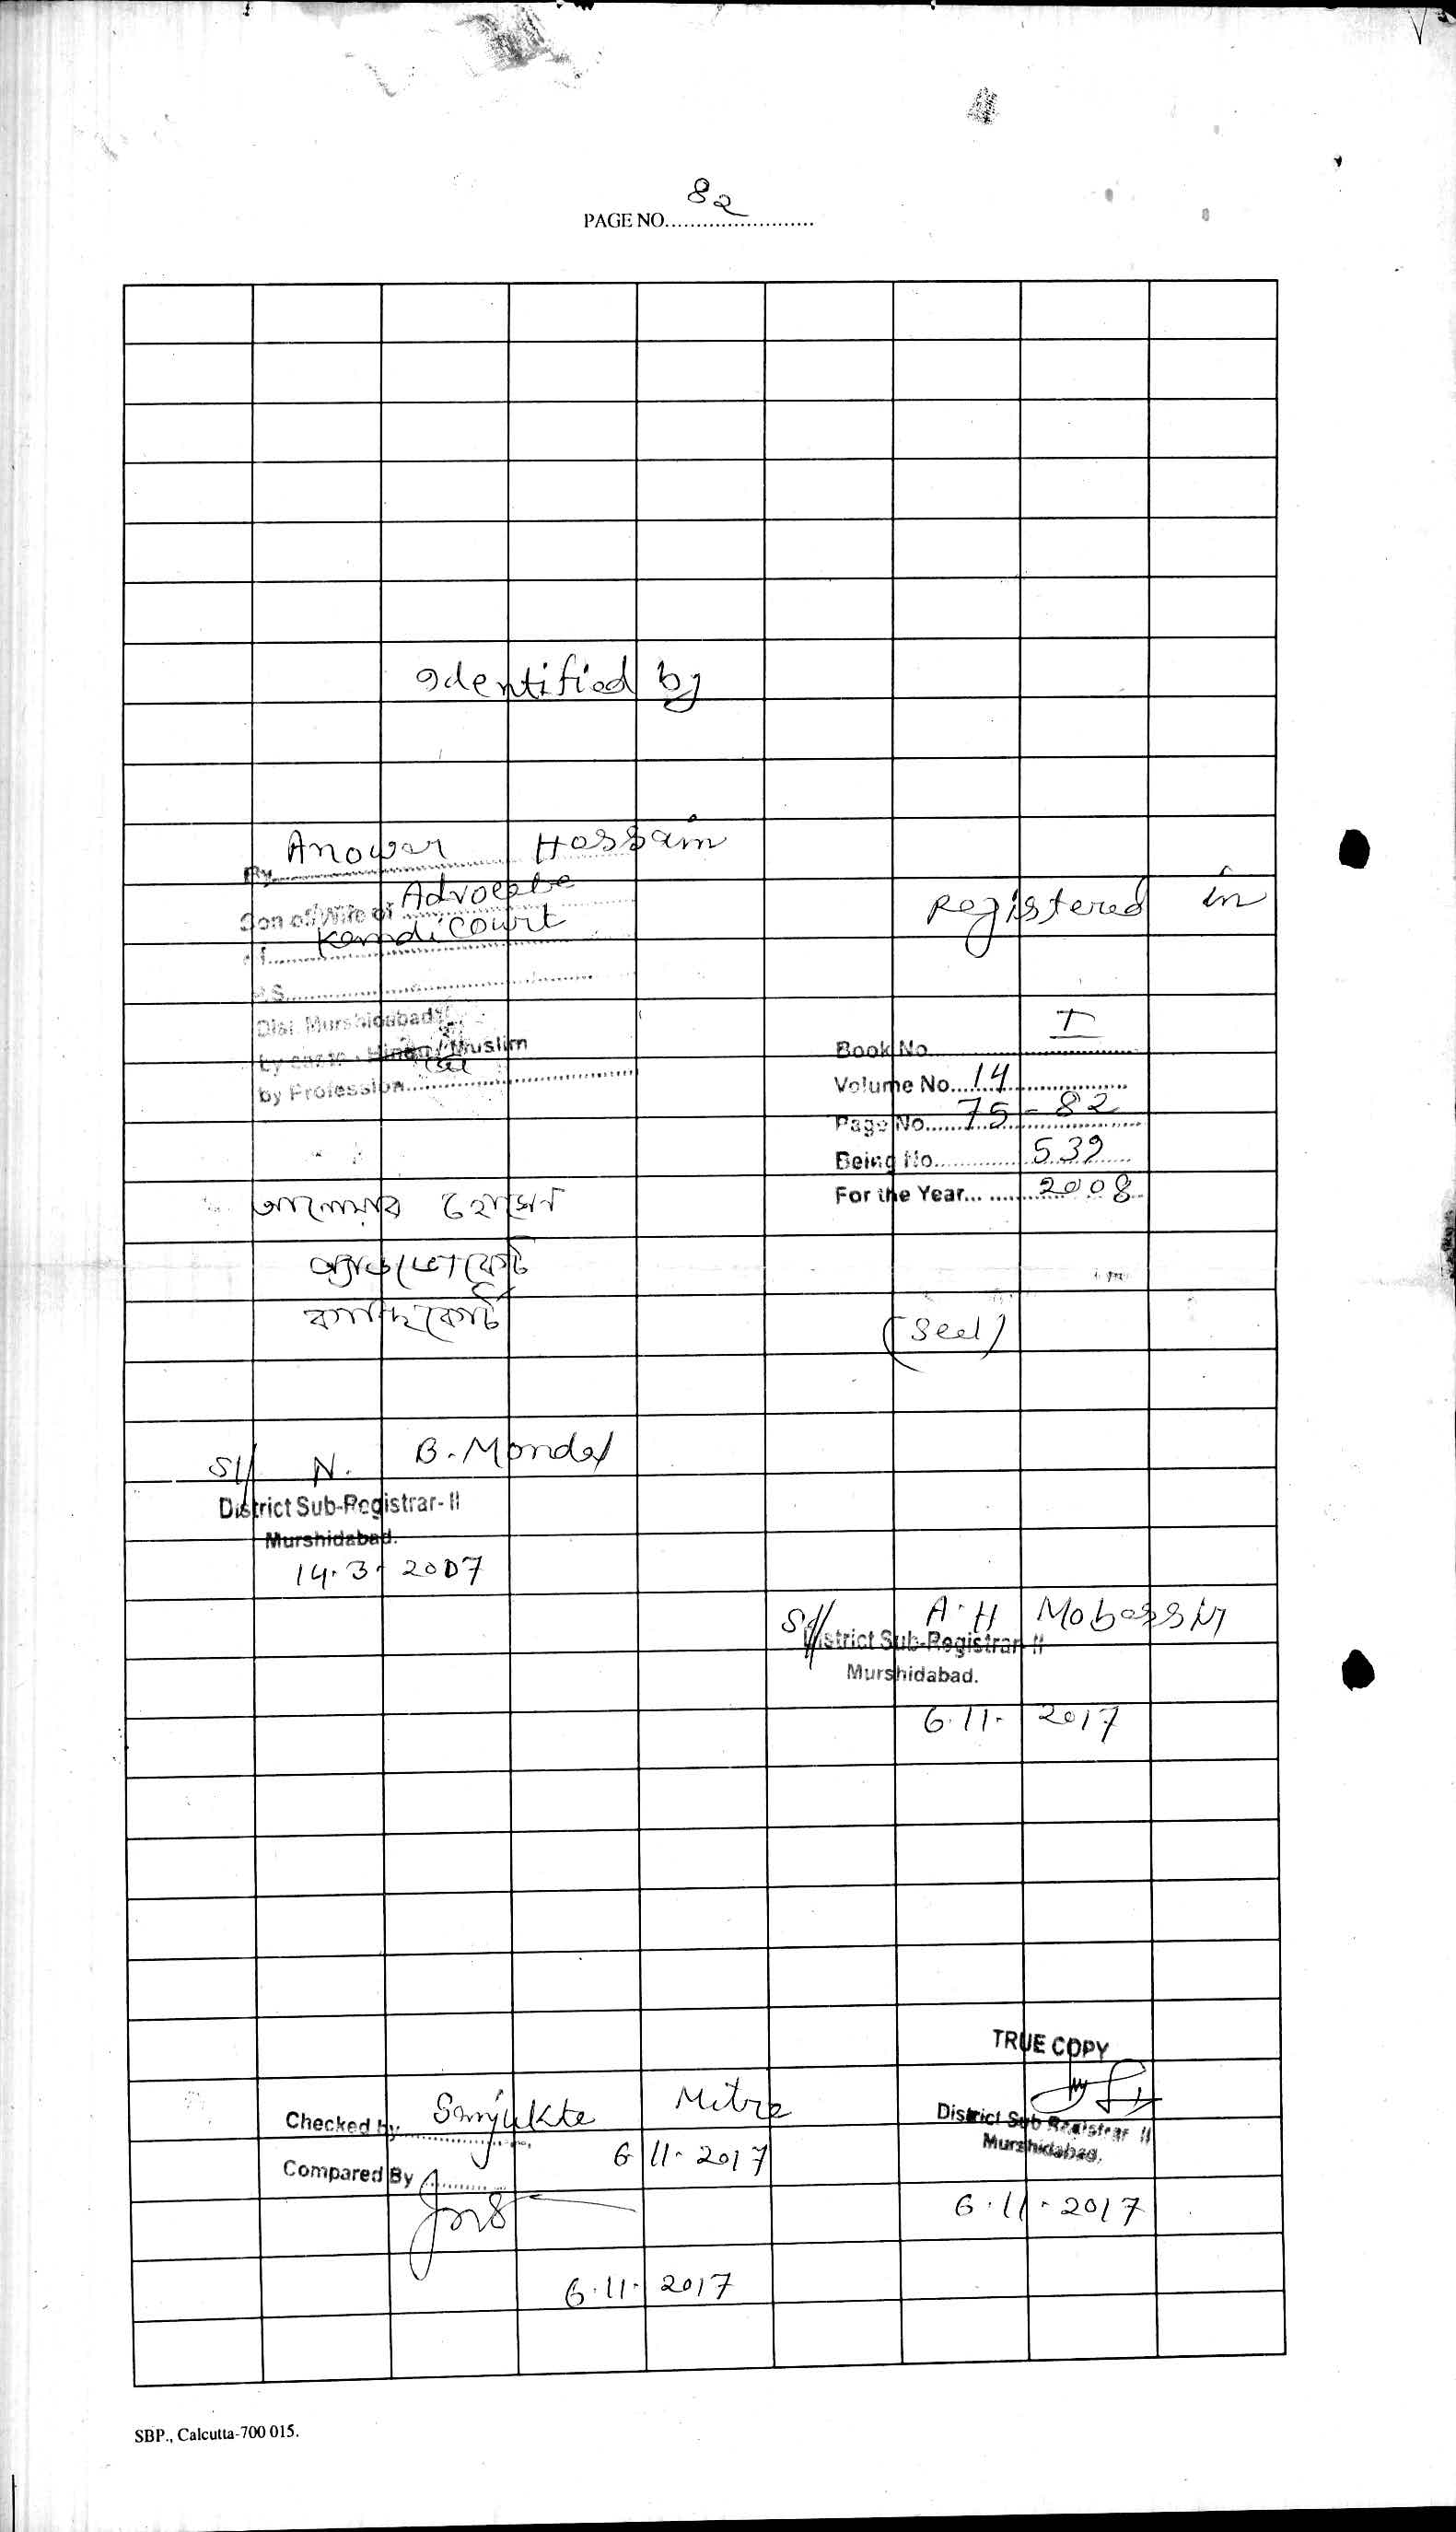 82
PAGE NO........................
Identified by
Anower Hossain
By
Advocate
Son of/Wife of
Kandi court
of
P.S.
Dist. Murshidabad
by caste - Hindu / Muslim
by Profession
আনোয়ার হোসেন
অ্যাডভোকেট
কান্দি কোর্ট
Sd/ N. B. Mondal
District Sub-Registrar- II
Murshidabad.
14.3. 2007
Registered in
Book No. I
Volume No. 14
Page No. 75 - 82
Being No. 539
For the Year... 2008
(Seal)
Sd/ A. H Mobassir
District Sub-Registrar- II
Murshidabad.
6.11. 2017
TRUE COPY
District Sub Registrar II
Murshidabad.
6.11.2017
Checked by Sanjukta Mitra
6 11. 2017
Compared By
6.11. 2017
SBP., Calcutta-700 015.